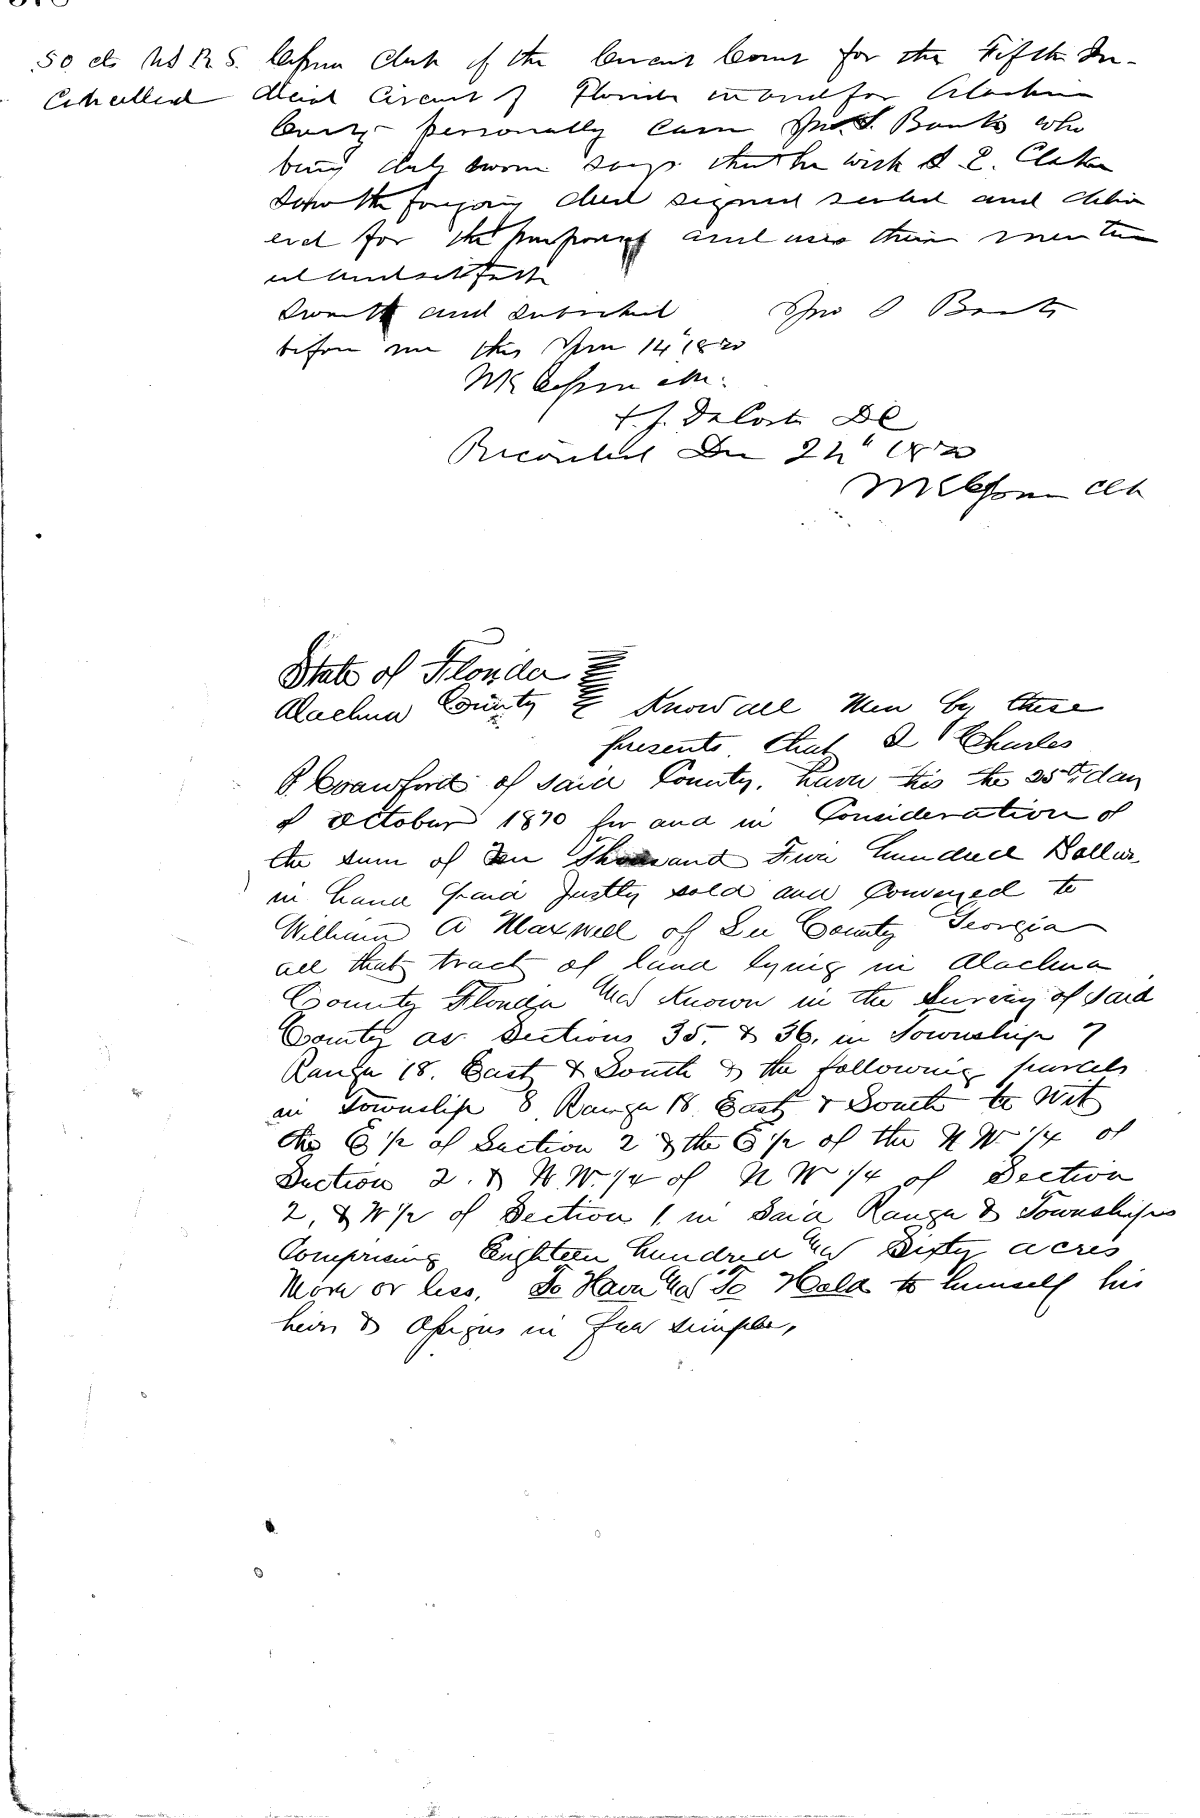 50 cts U S R S. Cessna Clerk of the Circuit Court for the Fifth Ju-
Cancelled dicial Circuit of Florida in and for Alachua
County personally came Jno. S. Banks who
being duly sworn says that he with S. E. Clark
saw the foregoing deed signed sealed and deliv
ered for the purposes and uses therein mention
ed and set forth
Sworn to and subscribed Jno S Banks
before me this Nov 14" 1870
W K Cessna clk.
DaCosta DC
Recorded Dec 24" 1870
W K Cessna Clk
State of Florida
Alachua County Know all Men by these
presents that I Charles
P. Crawford of said County, have this the 25th day
of October 1870 for and in Consideration of
the sum of Ten Thousand Five hundred Dollars
in hand paid justly sold and Conveyed to
William A Maxwell of Lee County Georgia
all that tract of land lying in Alachua
County Florida and Known in the Survey of said
County as Sections 35. & 36. in Township 7
Range 18. East & South & the following parcels
in Township 8 Range 18 East & South to Wit
the E 1/2 of Section 2 & the E 1/2 of the N W 1/4 of
Section 2. & N. W. 1/4 of N W 1/4 of Section
2, & W 1/2 of Section 1. in Said Range & Townships
Comprising Eighteen hundred and Sixty acres
More or less, To Have and To Hold to himself his
heirs & assigns in fee simple,